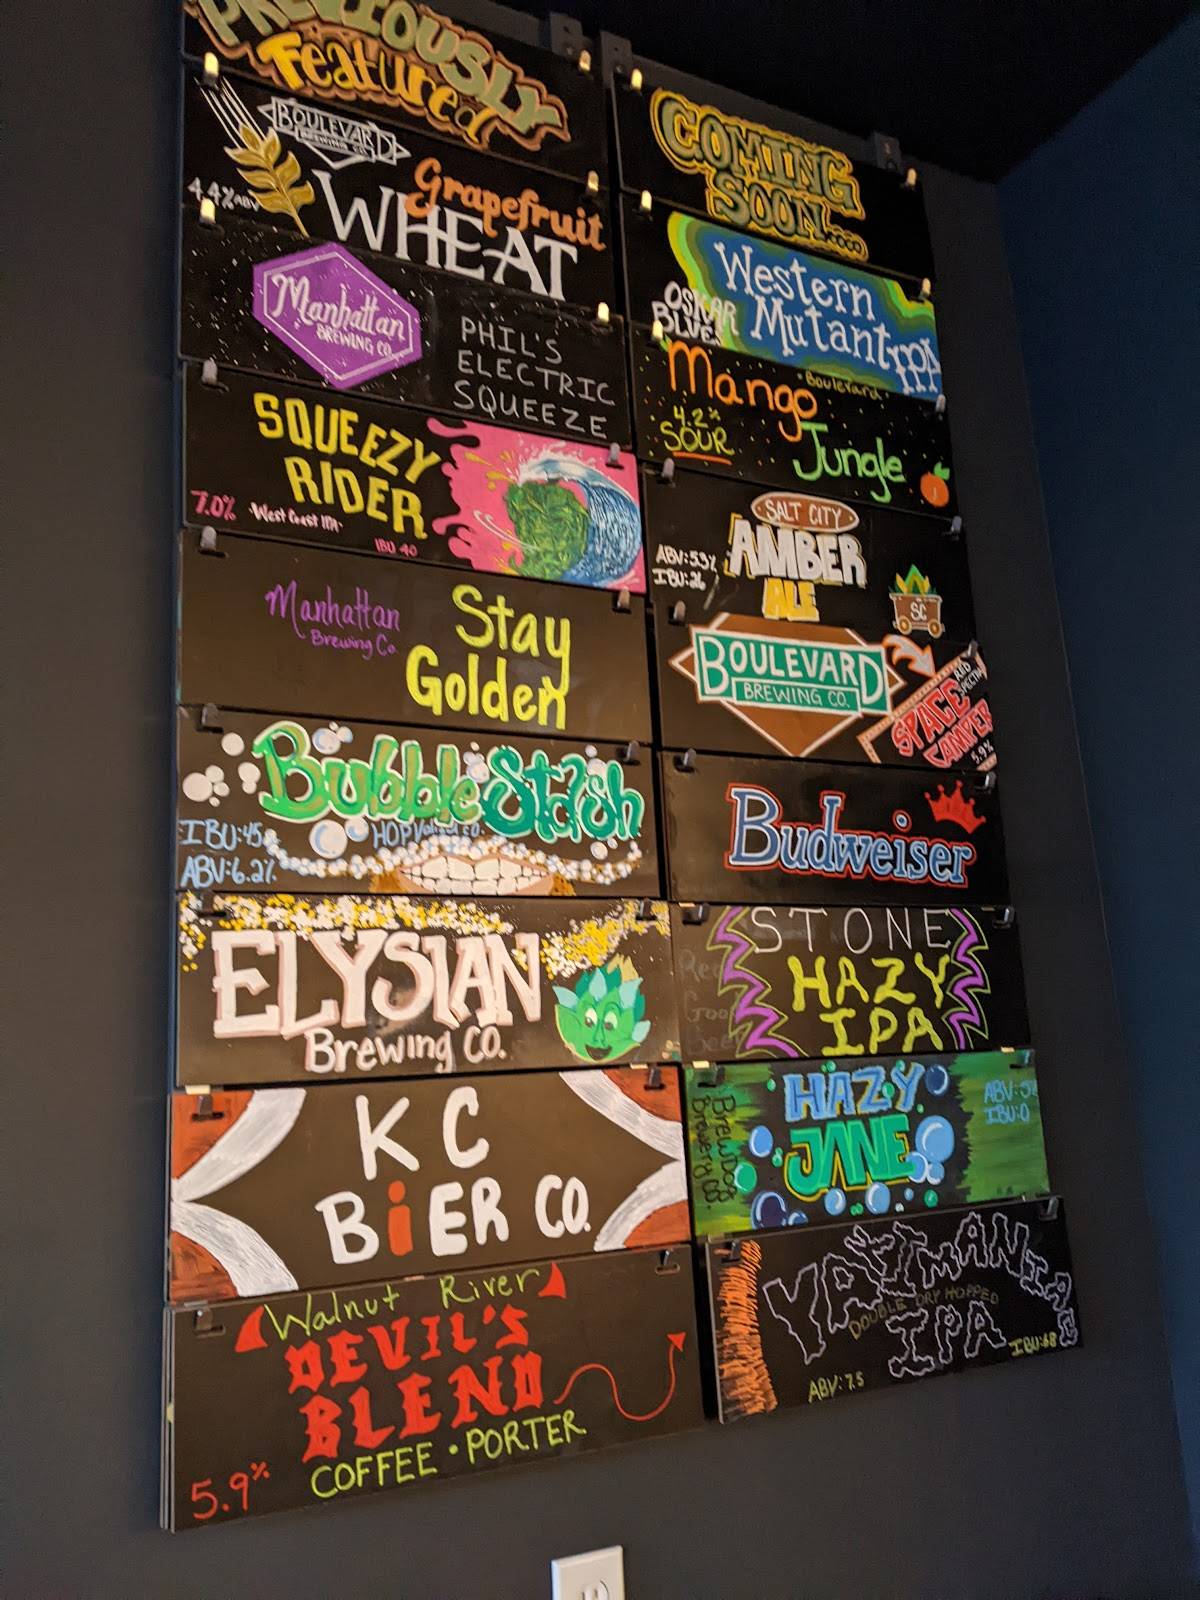 PREVIOUSLY
Featured
BOULEVARD
BREWING CO.
4.4% ABV
Grapefruit
WHEAT
Manhattan
BREWING CO.
PHIL'S
ELECTRIC
SQUEEZE
SQUEEZY
RIDER
7.0% ·West Coast IPA·
IBU 40
Manhattan
Brewing Co.
Stay
Golden
Bubble Stash
IBU:45
HOP Valley Co.
ABV:6.2%
ELYSIAN
Brewing CO.
KC
BiER CO.
Walnut River
DEVIL'S
BLEND
COFFEE · PORTER
5.9%
COMING
SOON....
Western
Mutant IPA
OSKAR
BLUES
Mango
·Boulevard·
4.2%
SOUR
Jungle
SALT CITY
AMBER
ALE
ABV:5.3%
IBU:26
SC
BOULEVARD
BREWING CO.
SPACE
CAMPER
5.9%
Budweiser
STONE
HAZY
IPA
HAZY
JANE
BrewDog
Brewery Co.
IBU:0
YAKIMANIAC
DOUBLE DRY HOPPED
IPA
ABV:7.5
IBU:68